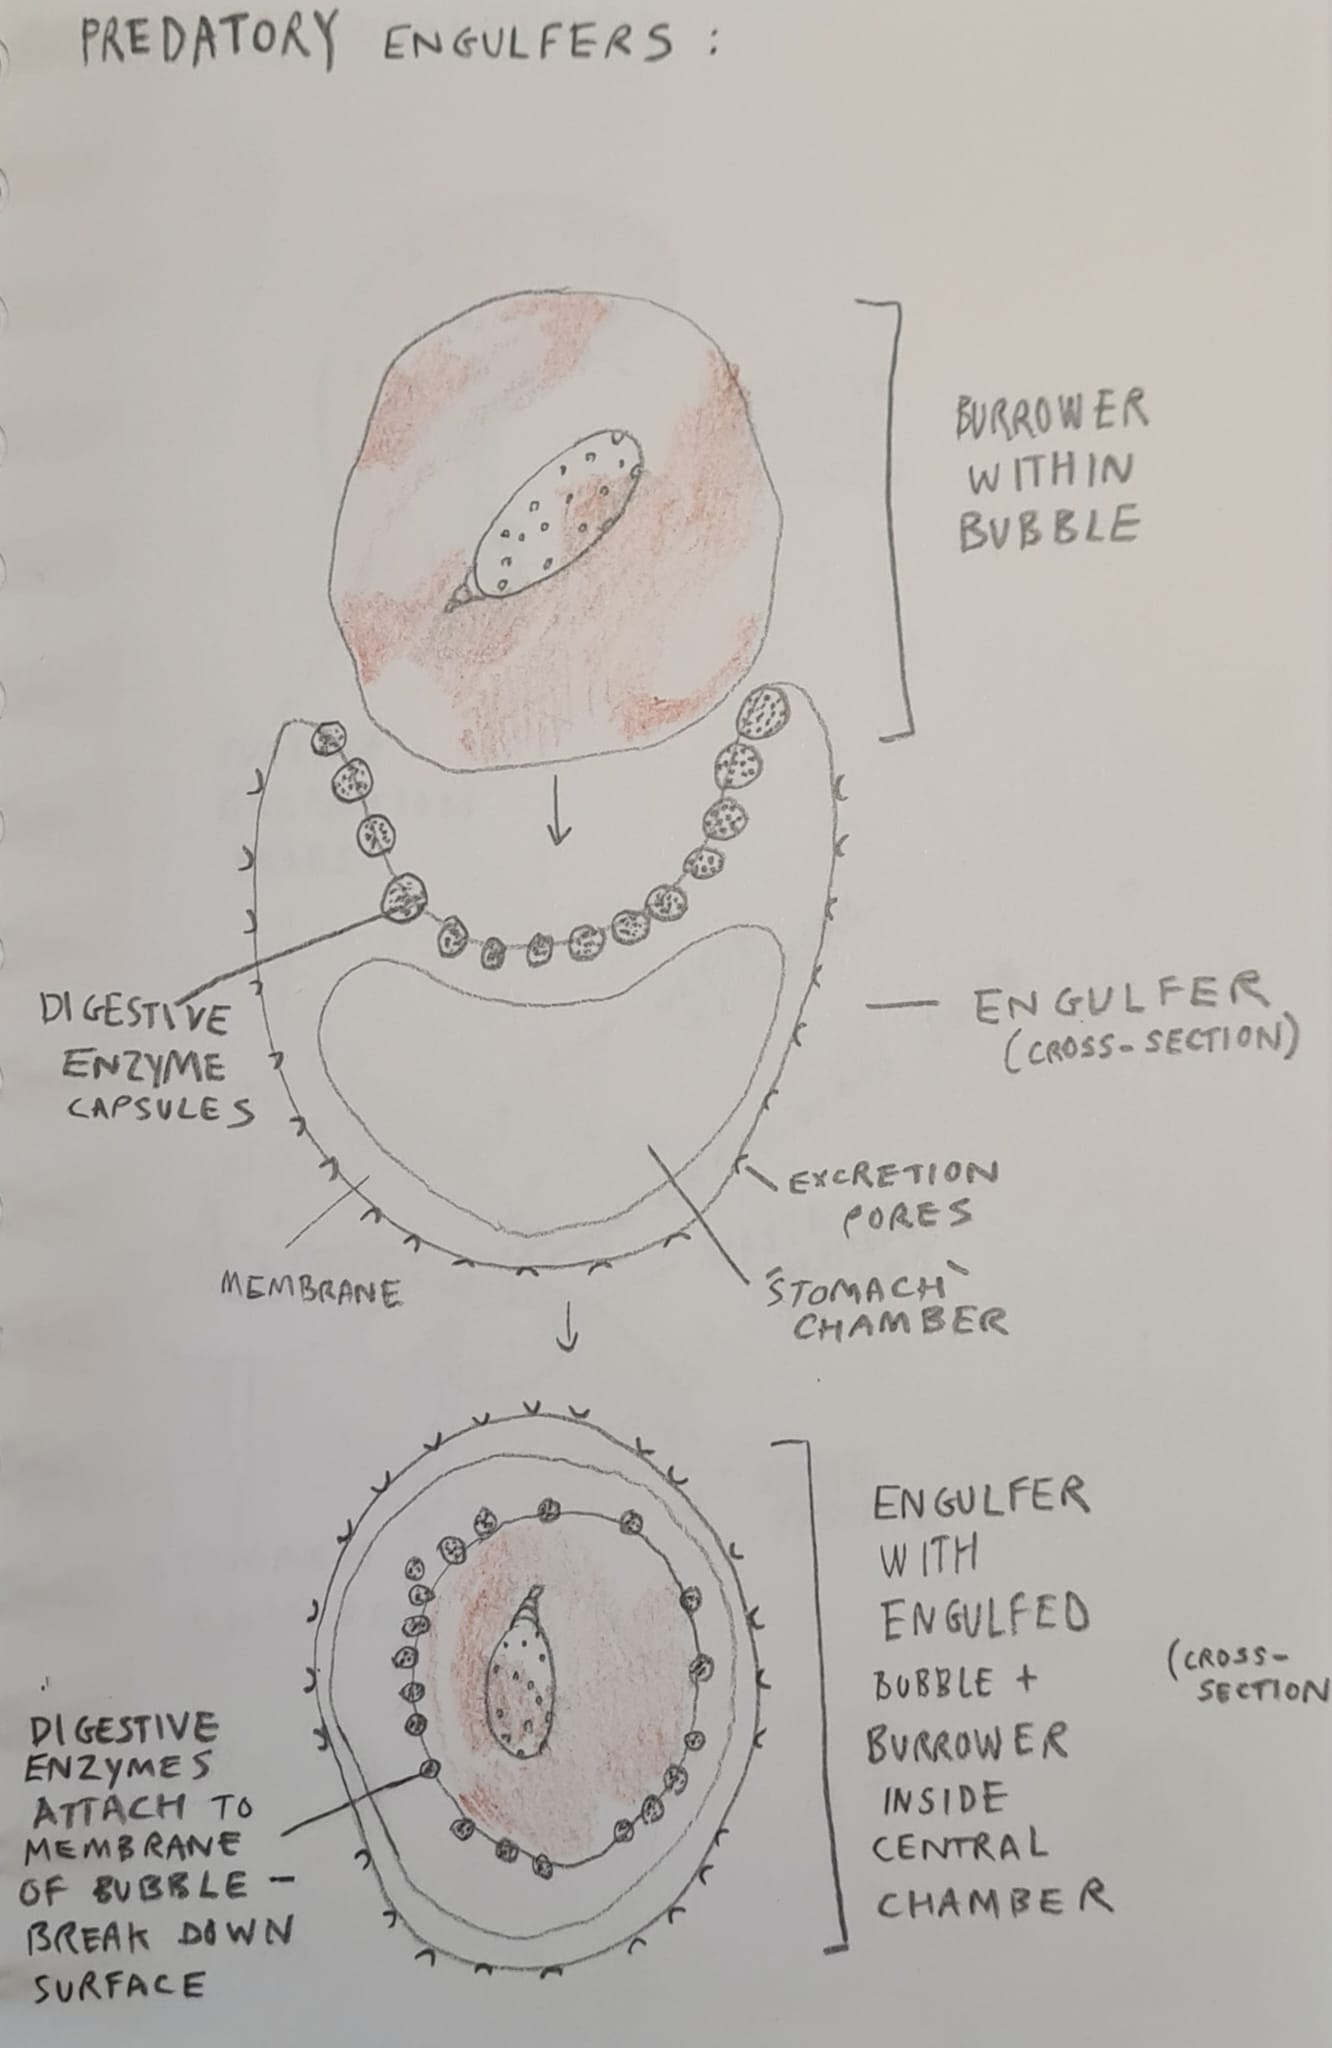 PREDATORY ENGULFERS :
BURROWER
WITHIN
BUBBLE
DIGESTIVE
ENZYME
CAPSULES
ENGULFER
(CROSS-SECTION)
EXCRETION
PORES
"STOMACH"
CHAMBER
MEMBRANE
ENGULFER
WITH
ENGULFED
BUBBLE +
BURROWER
INSIDE
CENTRAL
CHAMBER
(CROSS-
SECTION
DIGESTIVE
ENZYMES
ATTACH TO
MEMBRANE
OF BUBBLE -
BREAK DOWN
SURFACE